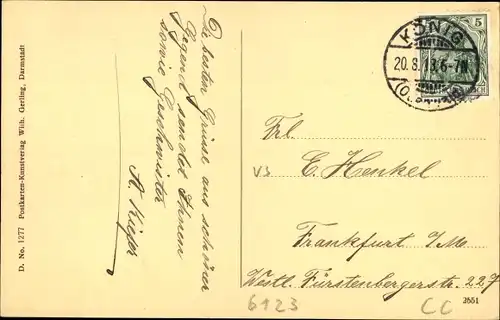 D. No. 1277 Postkarten-Kunstverlag Wilh. Gerling, Darmstadt
Die besten Grüsse aus schöner
Gegend sendet Ihnen
sowie Geschwister
A. Kiefer
5
KÖNIG
20.8.13.6-7N
Frl
E. Henkel
Frankfurt a/Mo.
Westl. Fürstenbergerstr. 227
V3
6123
CC
3551